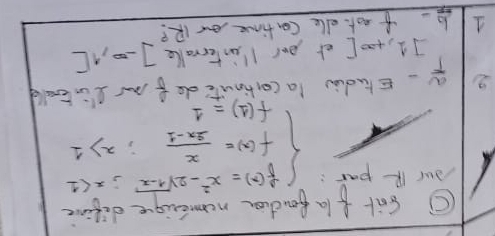 C Soit f la fonction numérique définie
sur ℝ par :
f(x) = x² - 2√(1-x) ; x < 1
f(x) = x/(2x-1) ; x > 1
f(1) = 1
a - Etudier la continuité de f sur l'intervalle
]1, +∞[ et sur l'intervalle ]-∞, 1[
b - f est elle continue sur ℝ ?
2
1